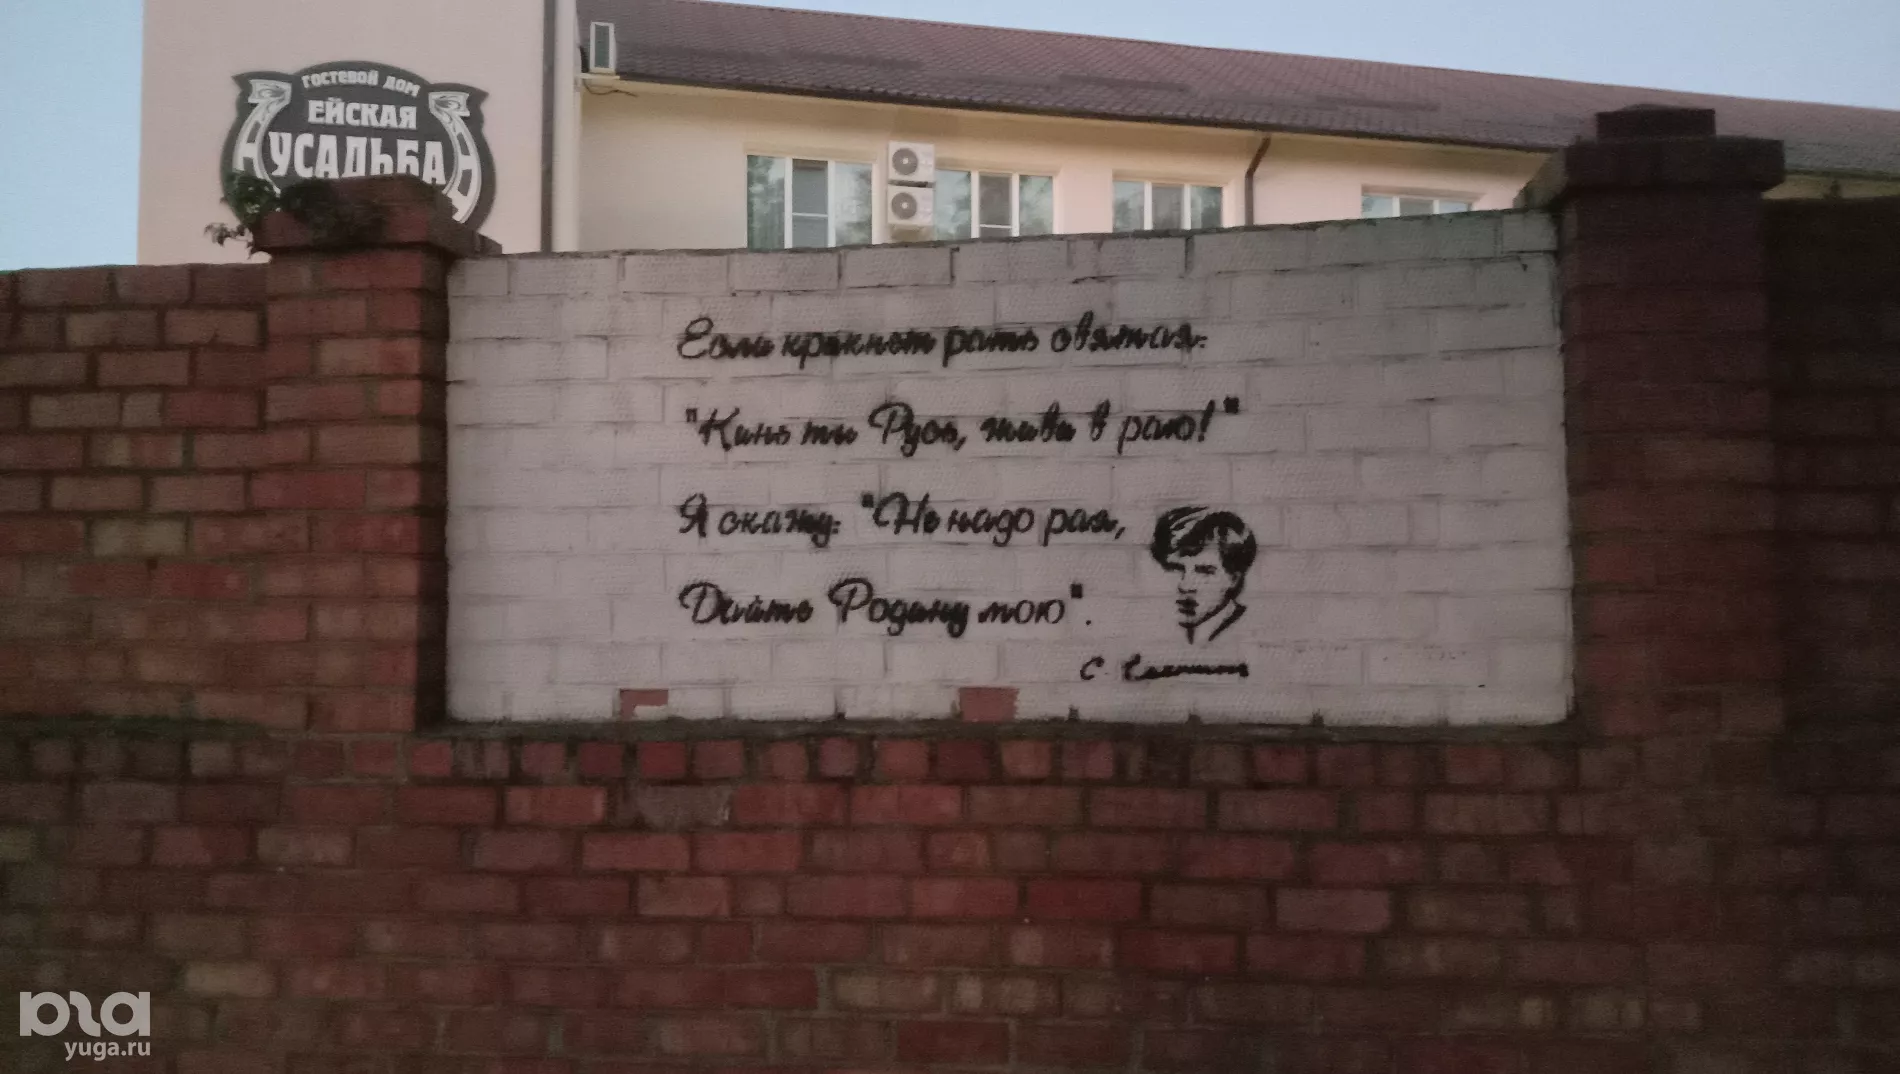 ГОСТЕВОЙ ДОМ
ЕЙСКАЯ
УСАДЬБА
Если крикнет рать святая:
"Кинь ты Русь, живи в раю!"
Я скажу: "Не надо рая,
Дайте Родину мою".
С. Есенин
yuga.ru